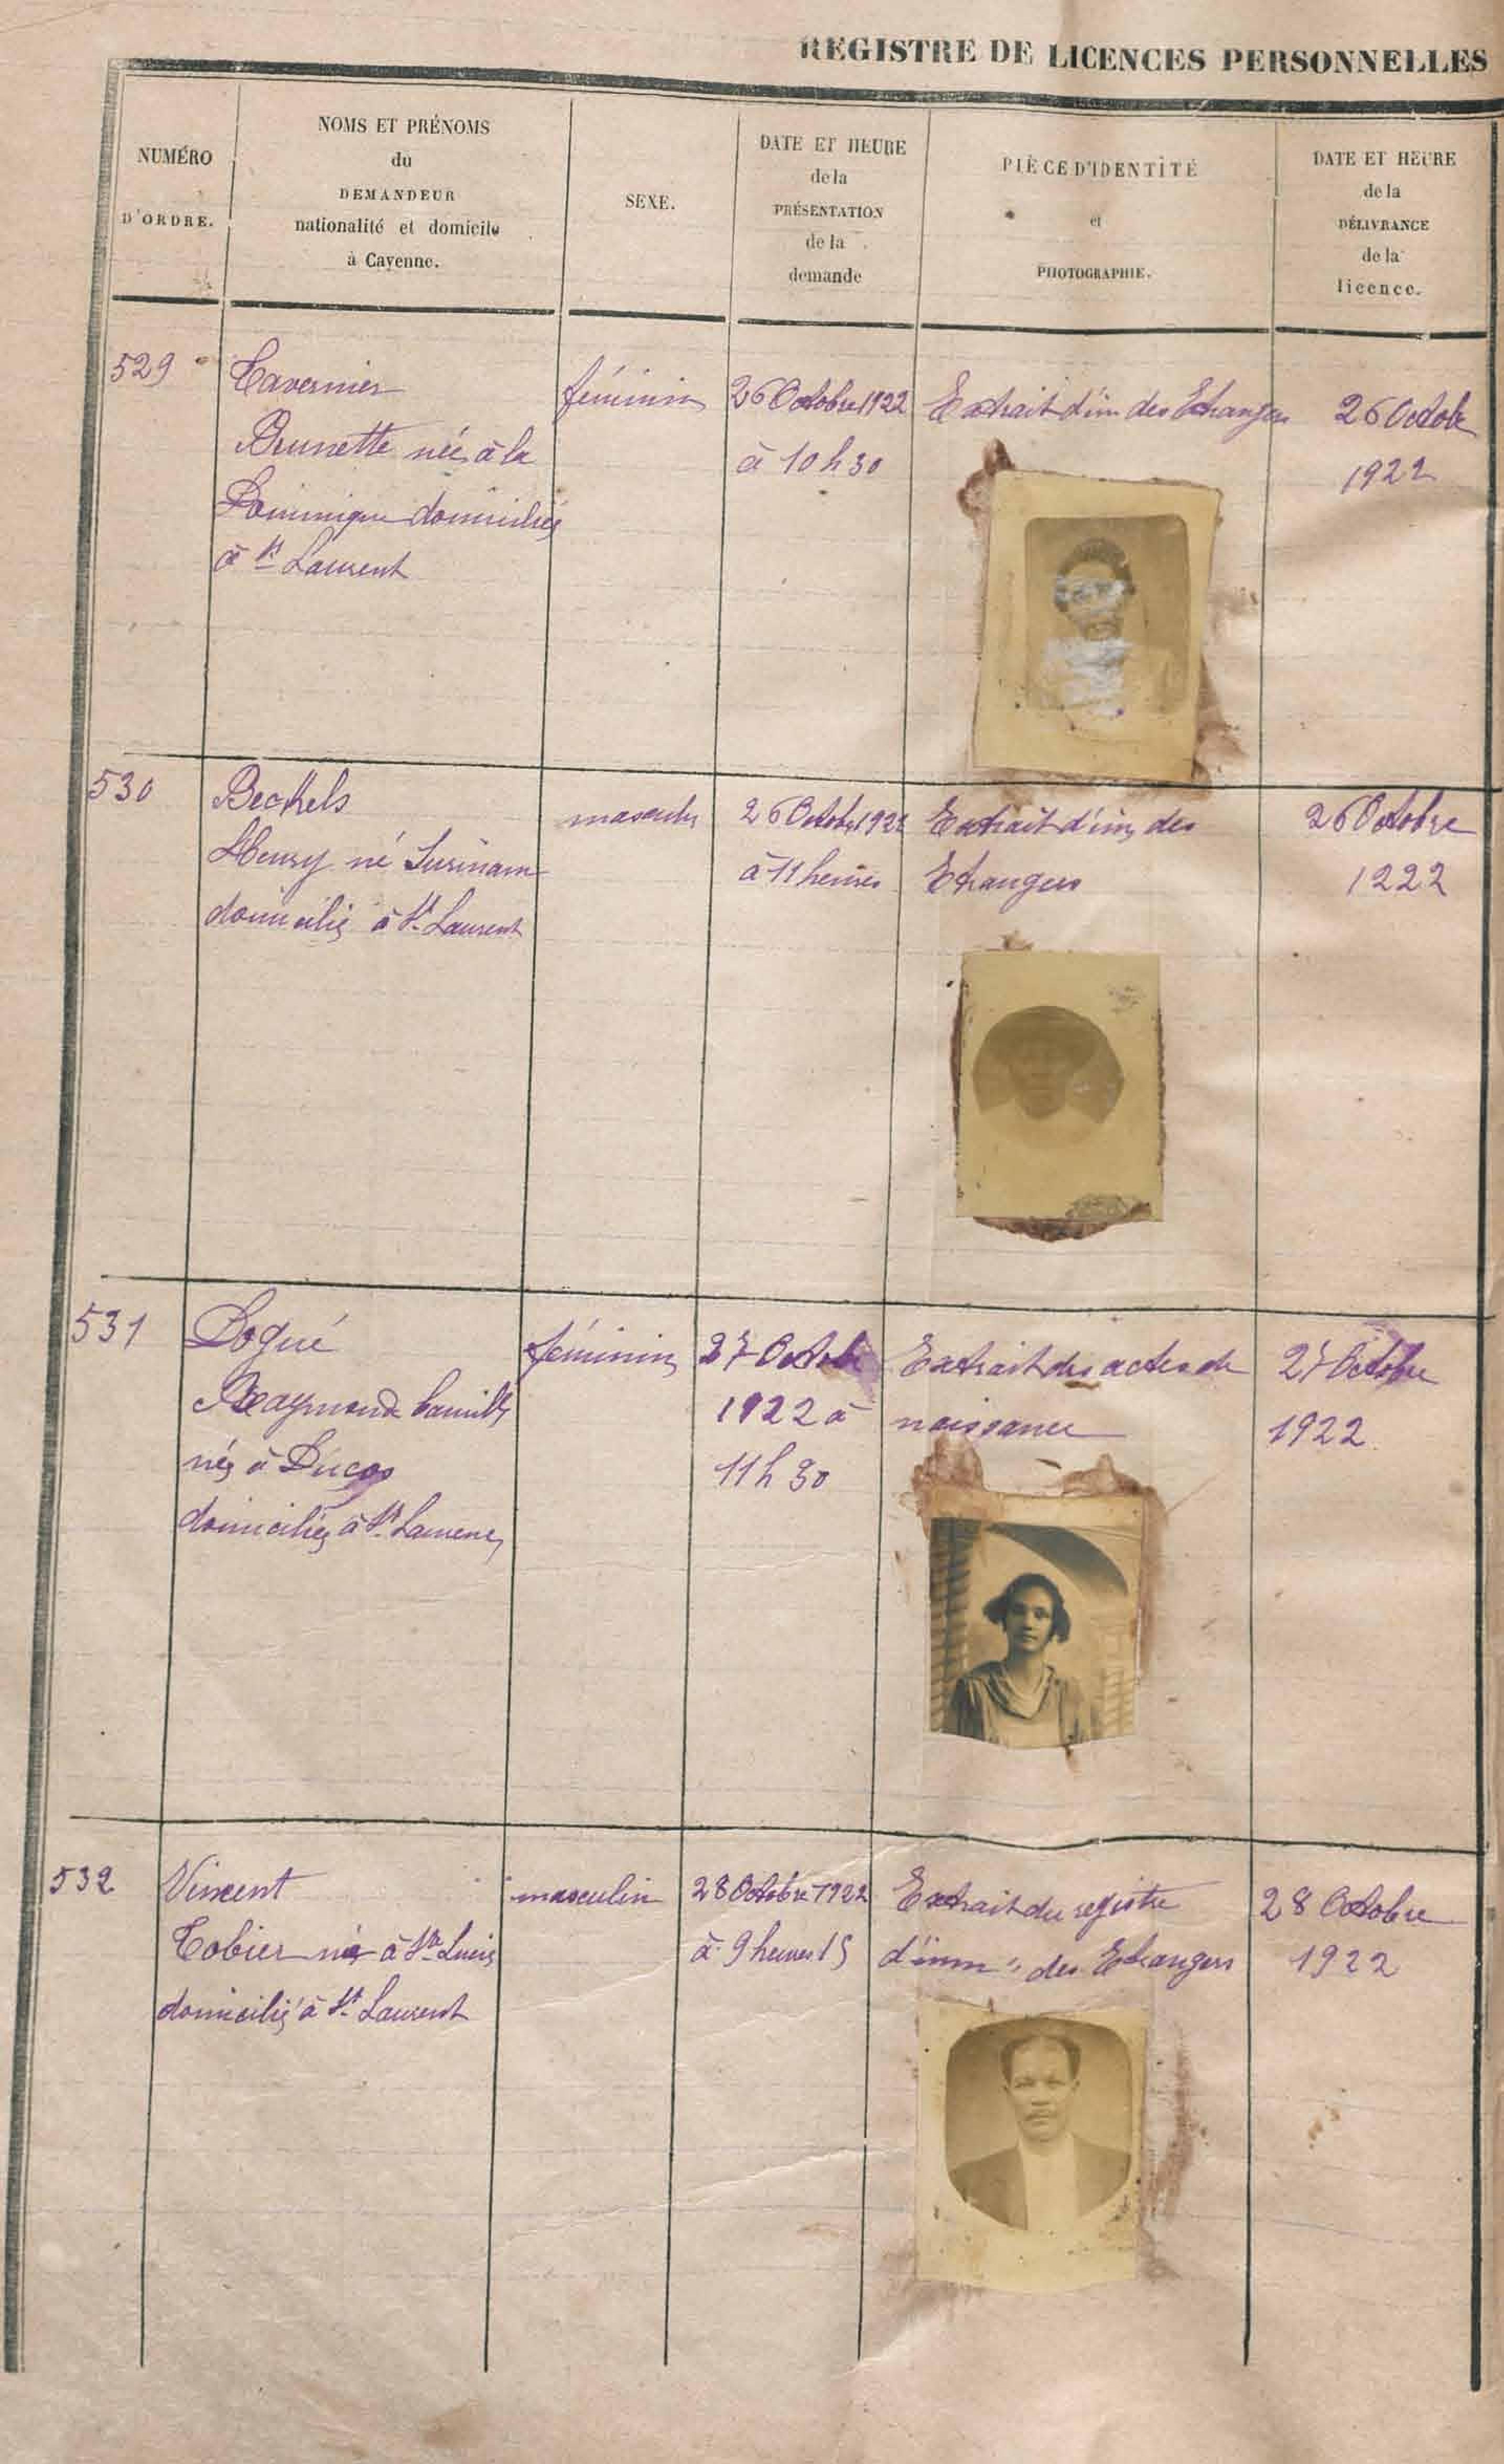 REGISTRE DE LICENCES PERSONNELLES
NUMÉRO
D'ORDRE.
NOMS ET PRÉNOMS
du
DEMANDEUR
nationalité et domicile
à Cayenne.
SEXE.
DATE ET HEURE
de la
PRÉSENTATION
de la
demande
PIÈCE D'IDENTITÉ
et
PHOTOGRAPHIE.
DATE ET HEURE
de la
DÉLIVRANCE
de la
licence.
529
Tavernier
Brunette née à la
Dominique domiciliée
à St Laurent
féminin
26 Octobre 1922
à 10 h 30
Extrait d'im des Etrangers
26 Octob
1922
530
Beckels
Henry né Surinam
domicilié à St Laurent
masculin
26 Octobre 1922
à 11 heures
Extrait d'im des
Etrangers
26 Octobre
1222
531
Dogué
Raymonde Camille
née à Ducos
domiciliée à St Laurent
féminin
27 Octobre
1922 à
11 h 30
Extrait des actes de
naissance
27 Octobre
1922
532
Vincent
Tobier né à Ste Lucie
domicilié à St Laurent
masculin
28 Octobre 1922
à 9 heures 15
Extrait du registre
d'imm n des Etrangers
28 Octobre
1922